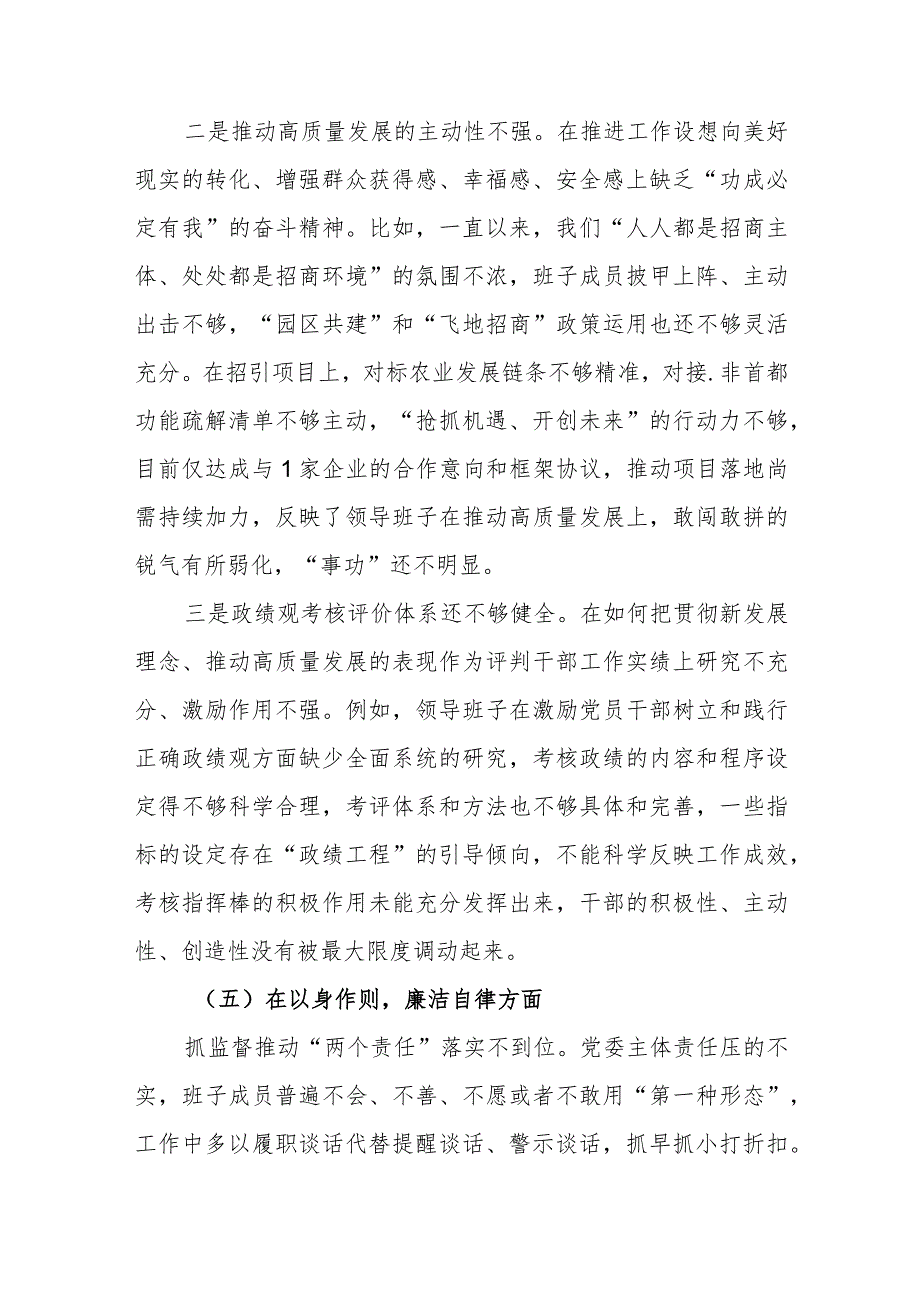 二是推动高质量发展的主动性不强。在推进工作设想向美好
现实的转化、增强群众获得感、幸福感、安全感上缺乏“功成必
定有我”的奋斗精神。比如，一直以来，我们“人人都是招商主
体、处处都是招商环境”的氛围不浓，班子成员披甲上阵、主动
出击不够，“园区共建”和“飞地招商”政策运用也还不够灵活
充分。在招引项目上，对标农业发展链条不够精准，对接.非首都
功能疏解清单不够主动，“抢抓机遇、开创未来”的行动力不够，
目前仅达成与1家企业的合作意向和框架协议，推动项目落地尚
需持续加力，反映了领导班子在推动高质量发展上，敢闯敢拼的
锐气有所弱化，“事功”还不明显。
三是政绩观考核评价体系还不够健全。在如何把贯彻新发展
理念、推动高质量发展的表现作为评判干部工作实绩上研究不充
分、激励作用不强。例如，领导班子在激励党员干部树立和践行
正确政绩观方面缺少全面系统的研究，考核政绩的内容和程序设
定得不够科学合理，考评体系和方法也不够具体和完善，一些指
标的设定存在“政绩工程”的引导倾向，不能科学反映工作成效，
考核指挥棒的积极作用未能充分发挥出来，干部的积极性、主动
性、创造性没有被最大限度调动起来。
（五）在以身作则，廉洁自律方面
抓监督推动“两个责任”落实不到位。党委主体责任压的不
实，班子成员普遍不会、不善、不愿或者不敢用“第一种形态”，
工作中多以履职谈话代替提醒谈话、警示谈话，抓早抓小打折扣。